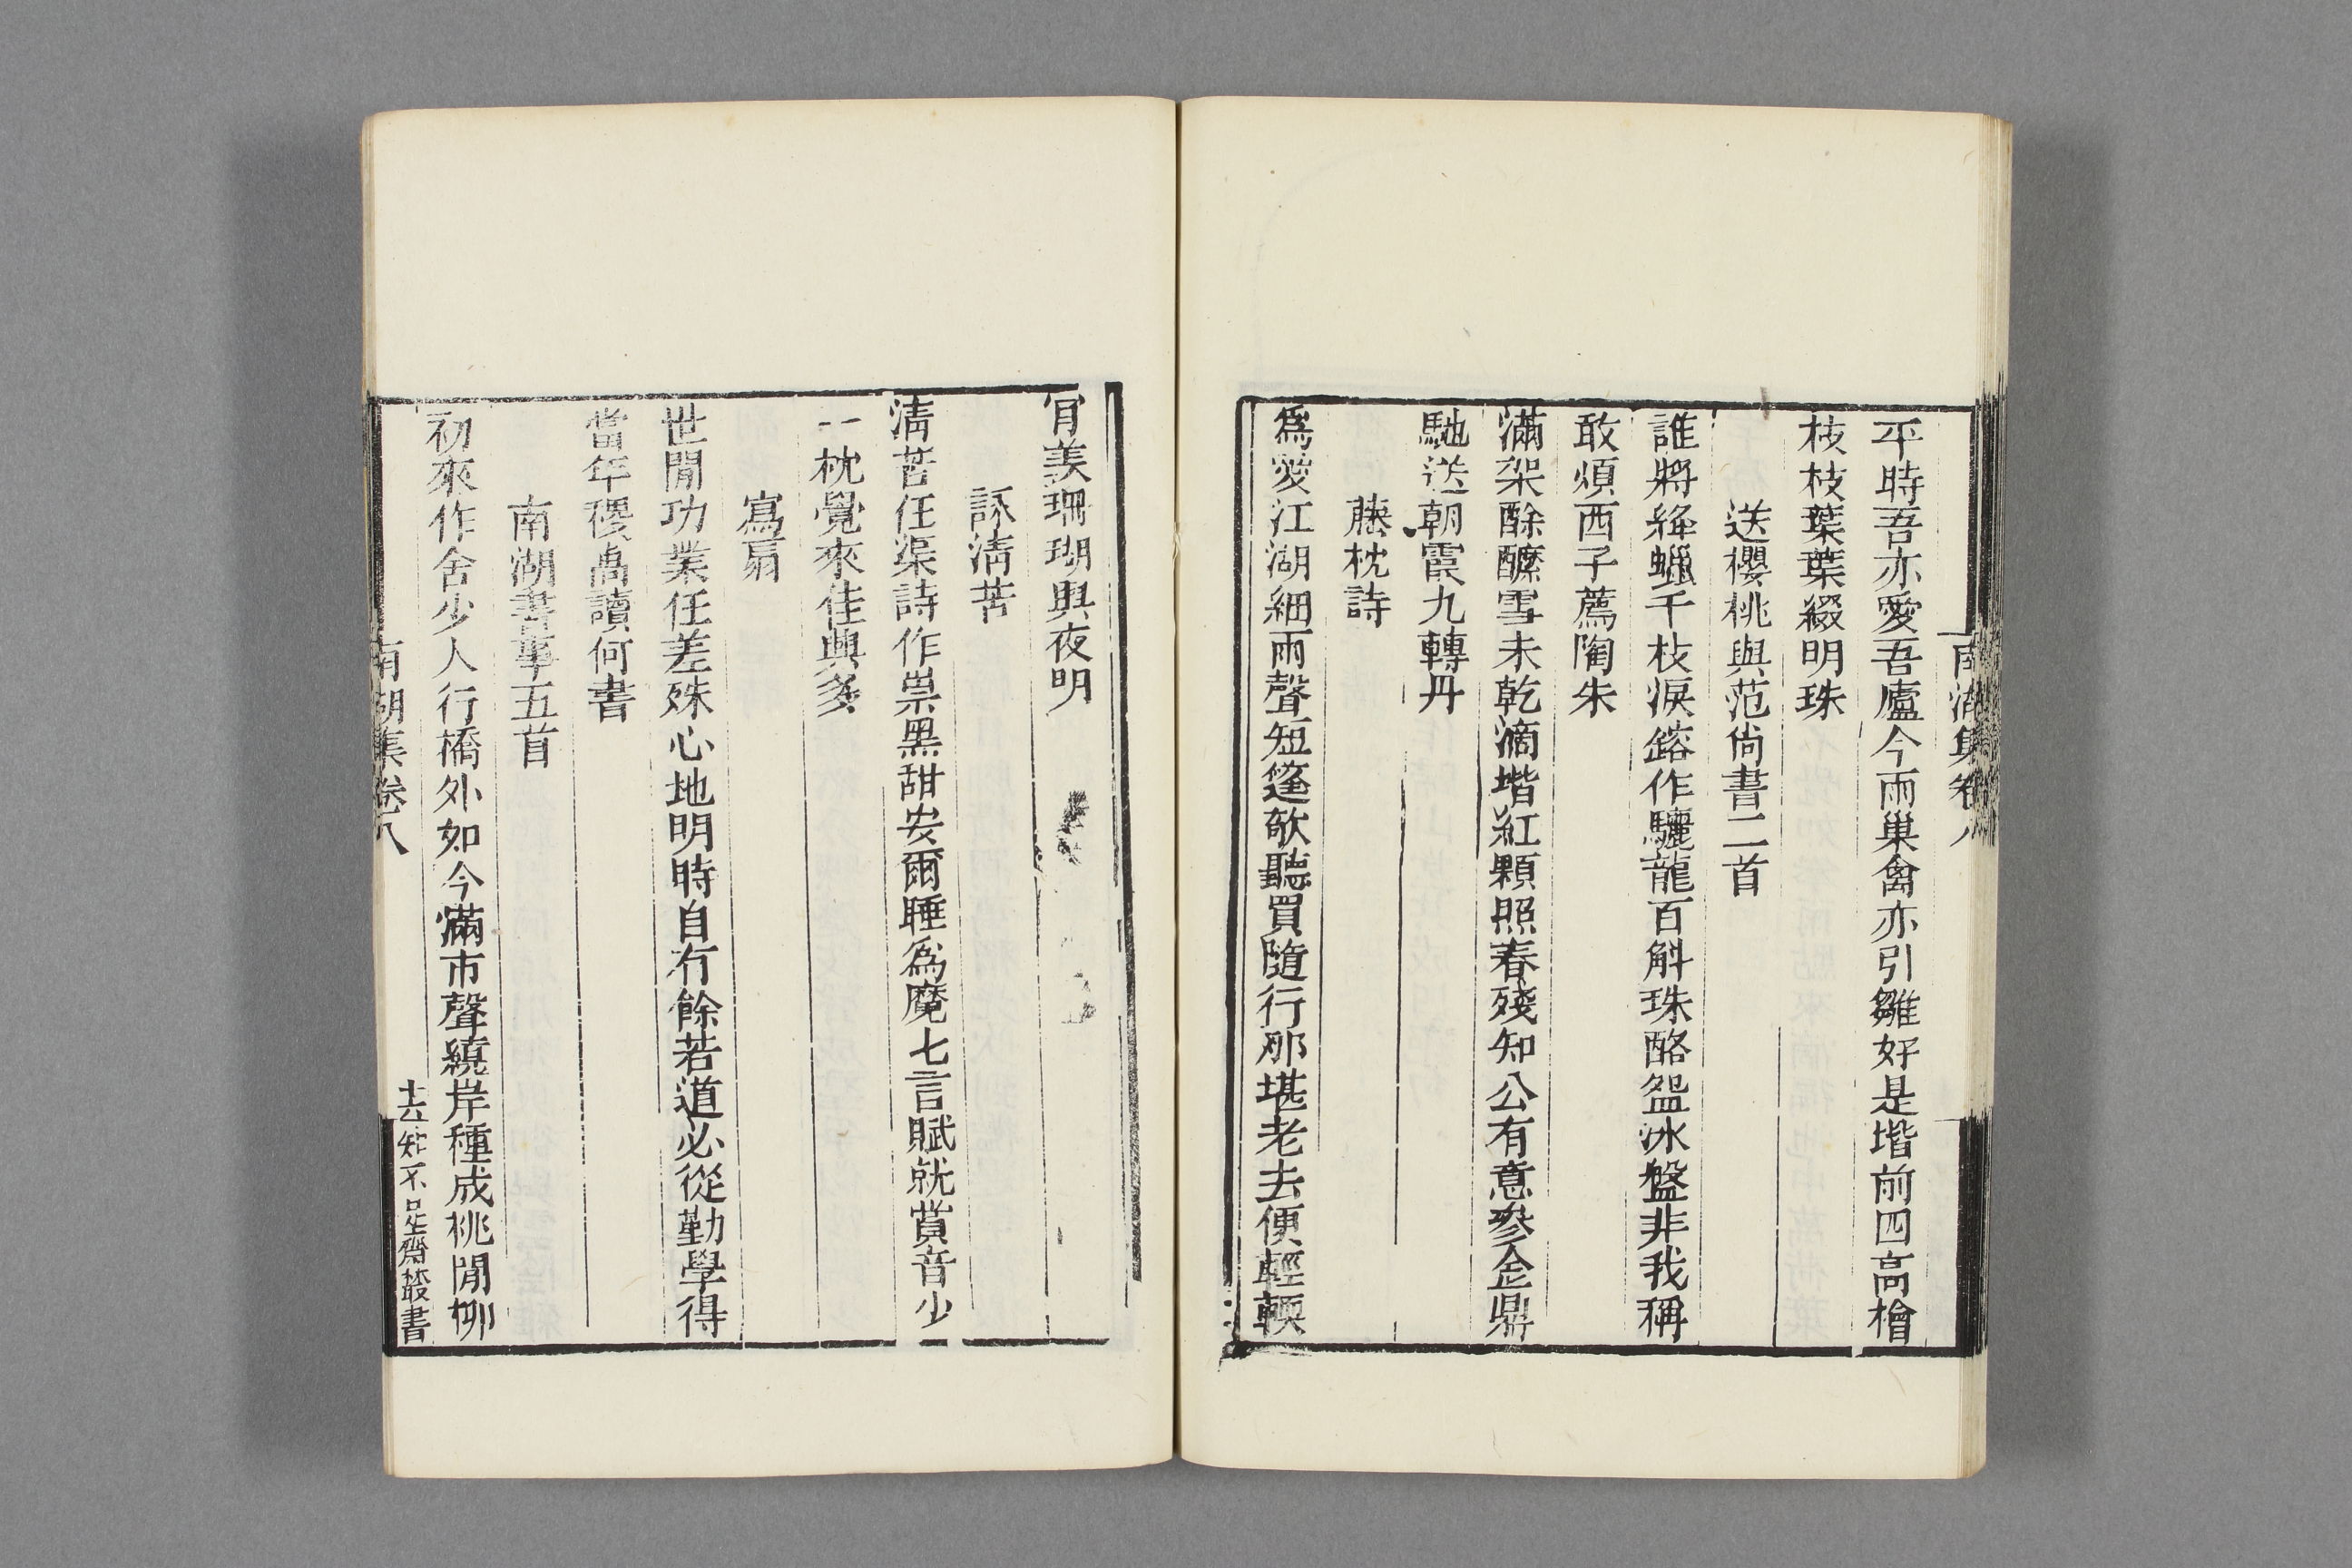 南湖集卷八
平時吾亦愛吾廬今雨巢禽亦引雛好是堦前四高檜
枝枝葉葉綴明珠
送櫻桃與范尙書二首
誰將絳蠟千枝淚鎔作驪龍百斛珠酪盌冰盤非我稱
敢煩西子薦陶朱
滿架酴醾雪未乾滴堦紅顆照春殘知公有意參金鼎
馳送朝霞九轉丹
藤枕詩
爲愛江湖細雨聲短篷欹聽買隨行那堪老去便輕輭
肎羨珊瑚與夜明
詠淸苦
淸苦任渠詩作祟黑甜安爾睡爲魔七言賦就賞音少
一枕覺來佳興多
寫扇
世閒功業任差殊心地明時自有餘若道必從勤學得
當年稷卨讀何書
南湖書事五首
初來作舍少人行橋外如今滿市聲繞岸種成桃閒柳
南湖集卷八
知不足齋叢書